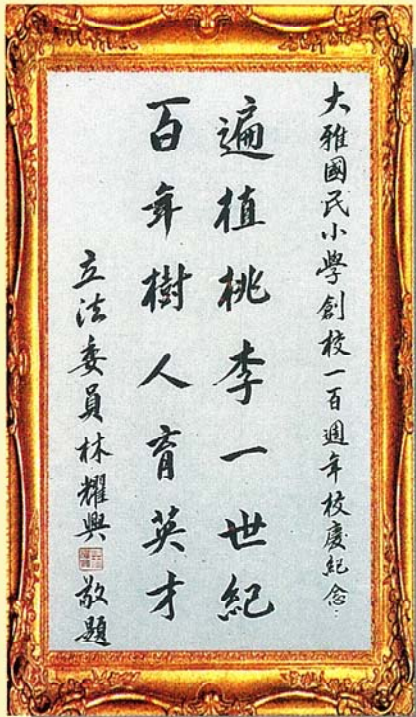 大雅國民小學創校一百週年校慶紀念：
遍植桃李一世紀
百年樹人育英才
立法委員林耀興敬題